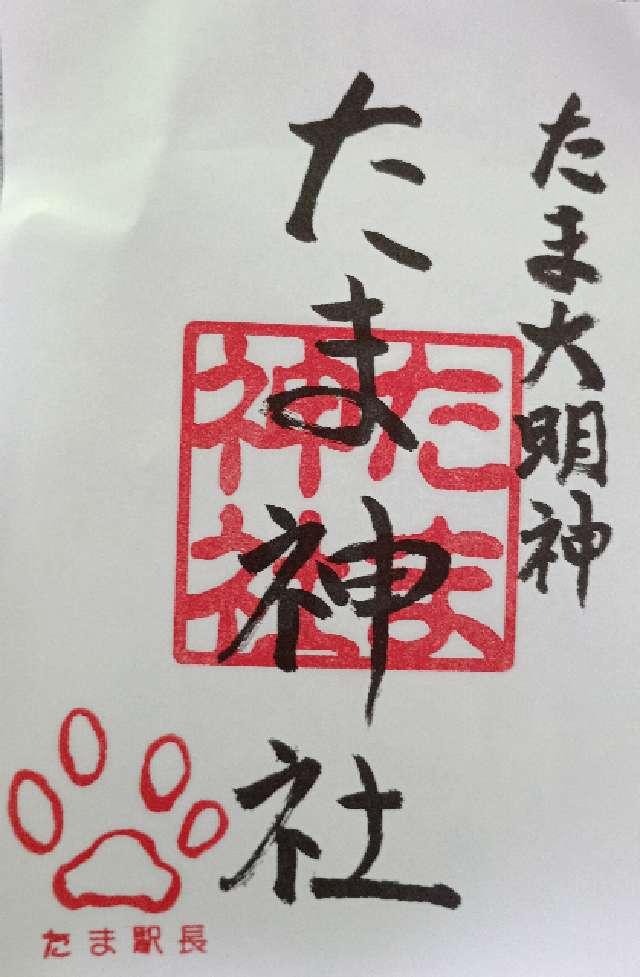 たま大明神
たま神社
たま
神社
たま駅長